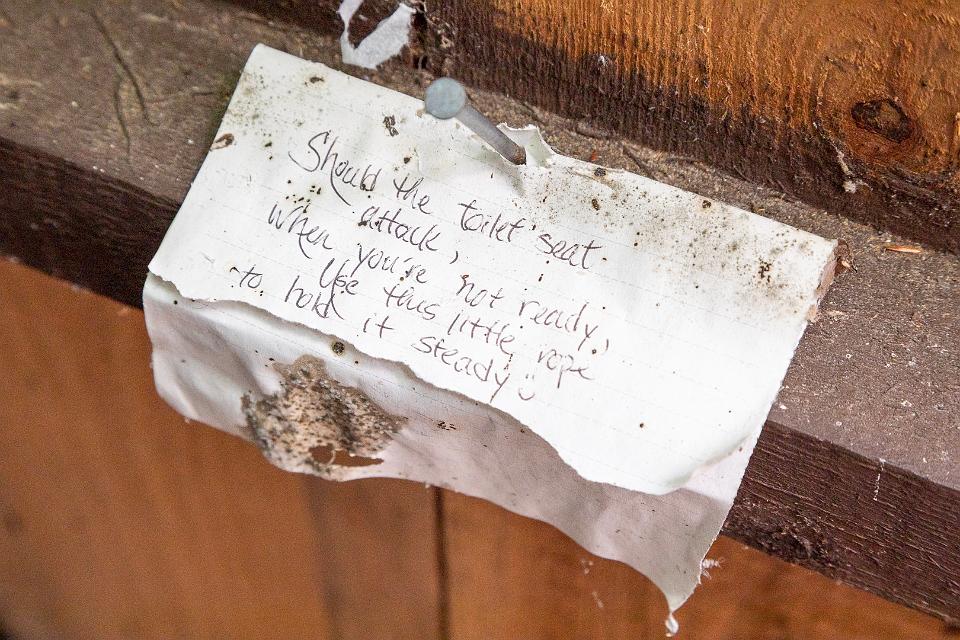 Should the toilet seat
attack,
When you're not ready,
Use this little rope
to hold it steady